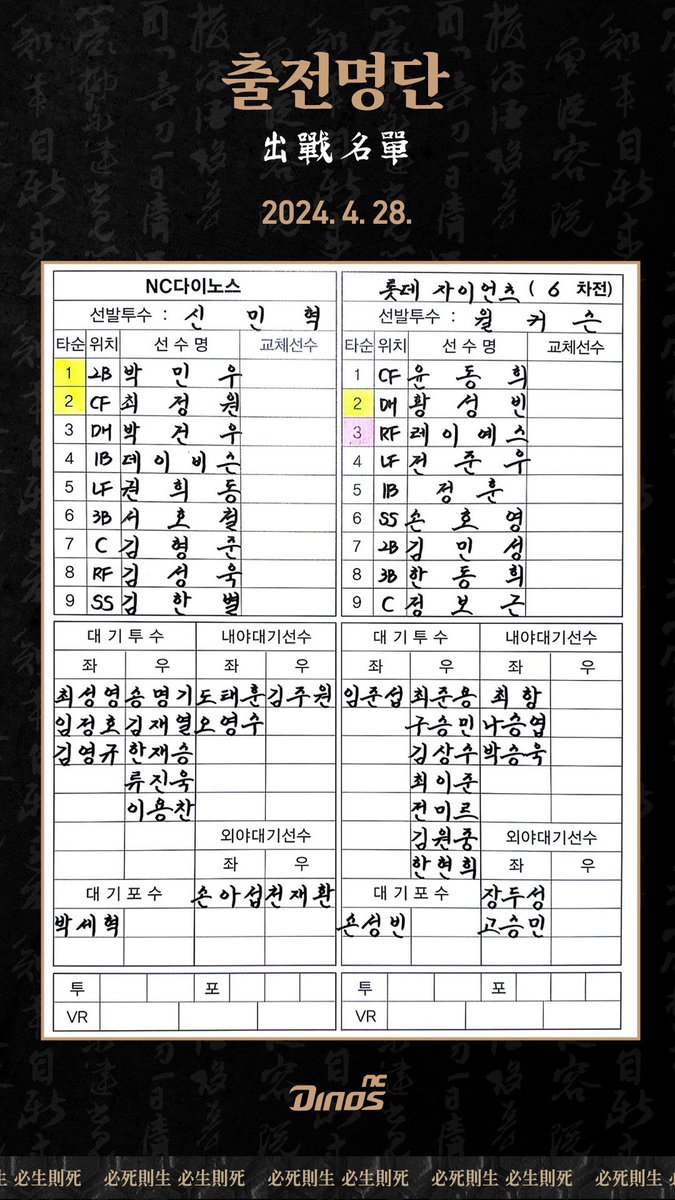 출전명단
出戰名單
2024. 4. 28.
NC다이노스
선발투수 : 신민혁
타순 위치 선수명 교체선수
1 2B 박민우
2 CF 최정원
3 DH 박건우
4 1B 데이비슨
5 LF 권희동
6 3B 서호철
7 C 김형준
8 RF 김성욱
9 SS 김한별
대기투수 내야대기선수
좌 우 좌 우
최성영 송명기 도태훈 김주원
임정호 김재열 오영수
김영규 한재승
류진욱
이용찬
외야대기선수
좌 우
대기포수 손아섭 천재환
박세혁
투 포
VR
롯데 자이언츠 ( 6 차전)
선발투수 : 윌커슨
타순 위치 선수명 교체선수
1 CF 윤동희
2 DH 황성빈
3 RF 레이예스
4 LF 전준우
5 1B 정훈
6 SS 손호영
7 2B 김민성
8 3B 한동희
9 C 정보근
대기투수 내야대기선수
좌 우 좌 우
임준섭 최준용 최항
구승민 나승엽
김상수 박승욱
최이준
전미르
김원중 외야대기선수
한현희 좌 우
대기포수 장두성
손성빈 고승민
투 포
VR
NC
DINOS
生 必生則死 必死則生 必生則死 必死則生 必生則死 必死則生